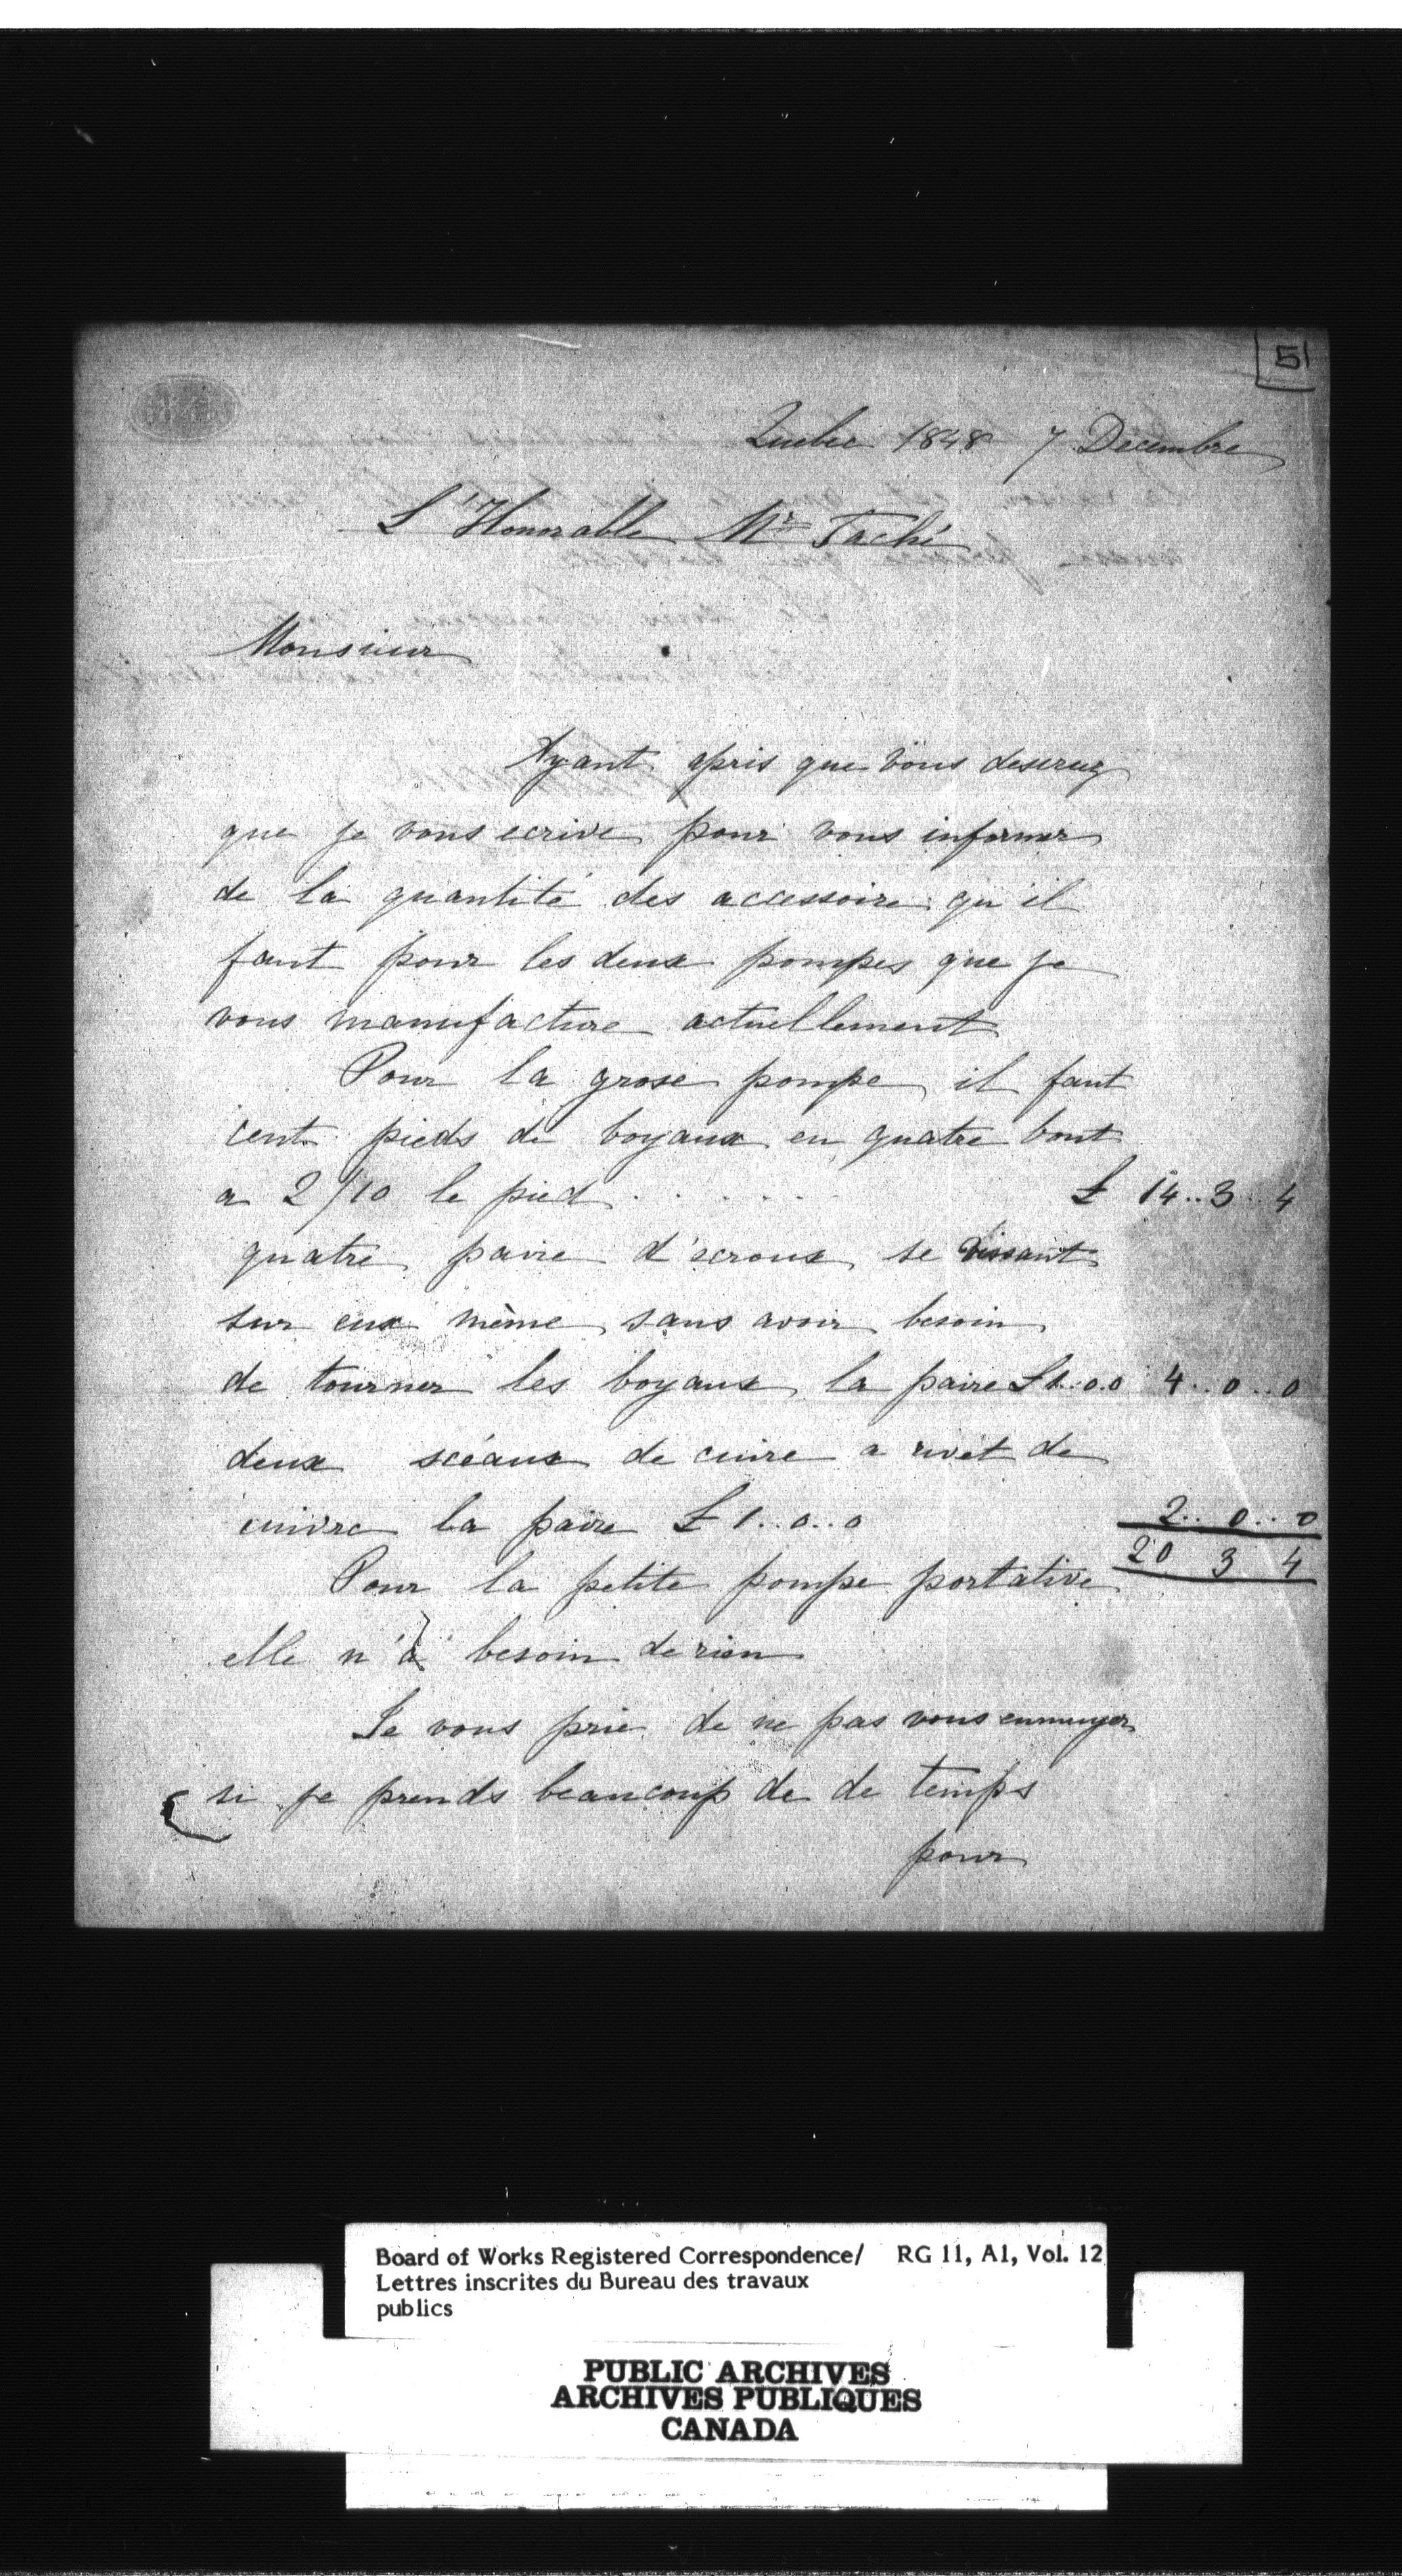 51
Quebec 1848 7 Decembre
L'Honorable Mr Taché
Monsieur
Ayant apris que vous desirez
que je vous ecrive pour vous informer
de la quantité des accessoire qu'il
faut pour les deux pompes que je
vous manufacture actuellement
Pour la grose pompe il faut
cent pieds de boyaux en quatre bout
a 2/10 le pied . . . . . . £ 14..3..4
quatre paire d'ecroux se vissant
sur eux même sans avoir besoin
de tourner les boyaux la paire £1..0.0 4..0..0
deux scéaux de cuire a rivet de
cuivre la paire £1..0..0 2..0..0
20 3 4
Pour la petite pompe portative
elle n'a besoin de rien
Je vous prie de ne pas vous ennuyer
si je prends beaucoup de de temps
pour
Board of Works Registered Correspondence/ RG 11, A1, Vol. 12
Lettres inscrites du Bureau des travaux
publics
PUBLIC ARCHIVES
ARCHIVES PUBLIQUES
CANADA